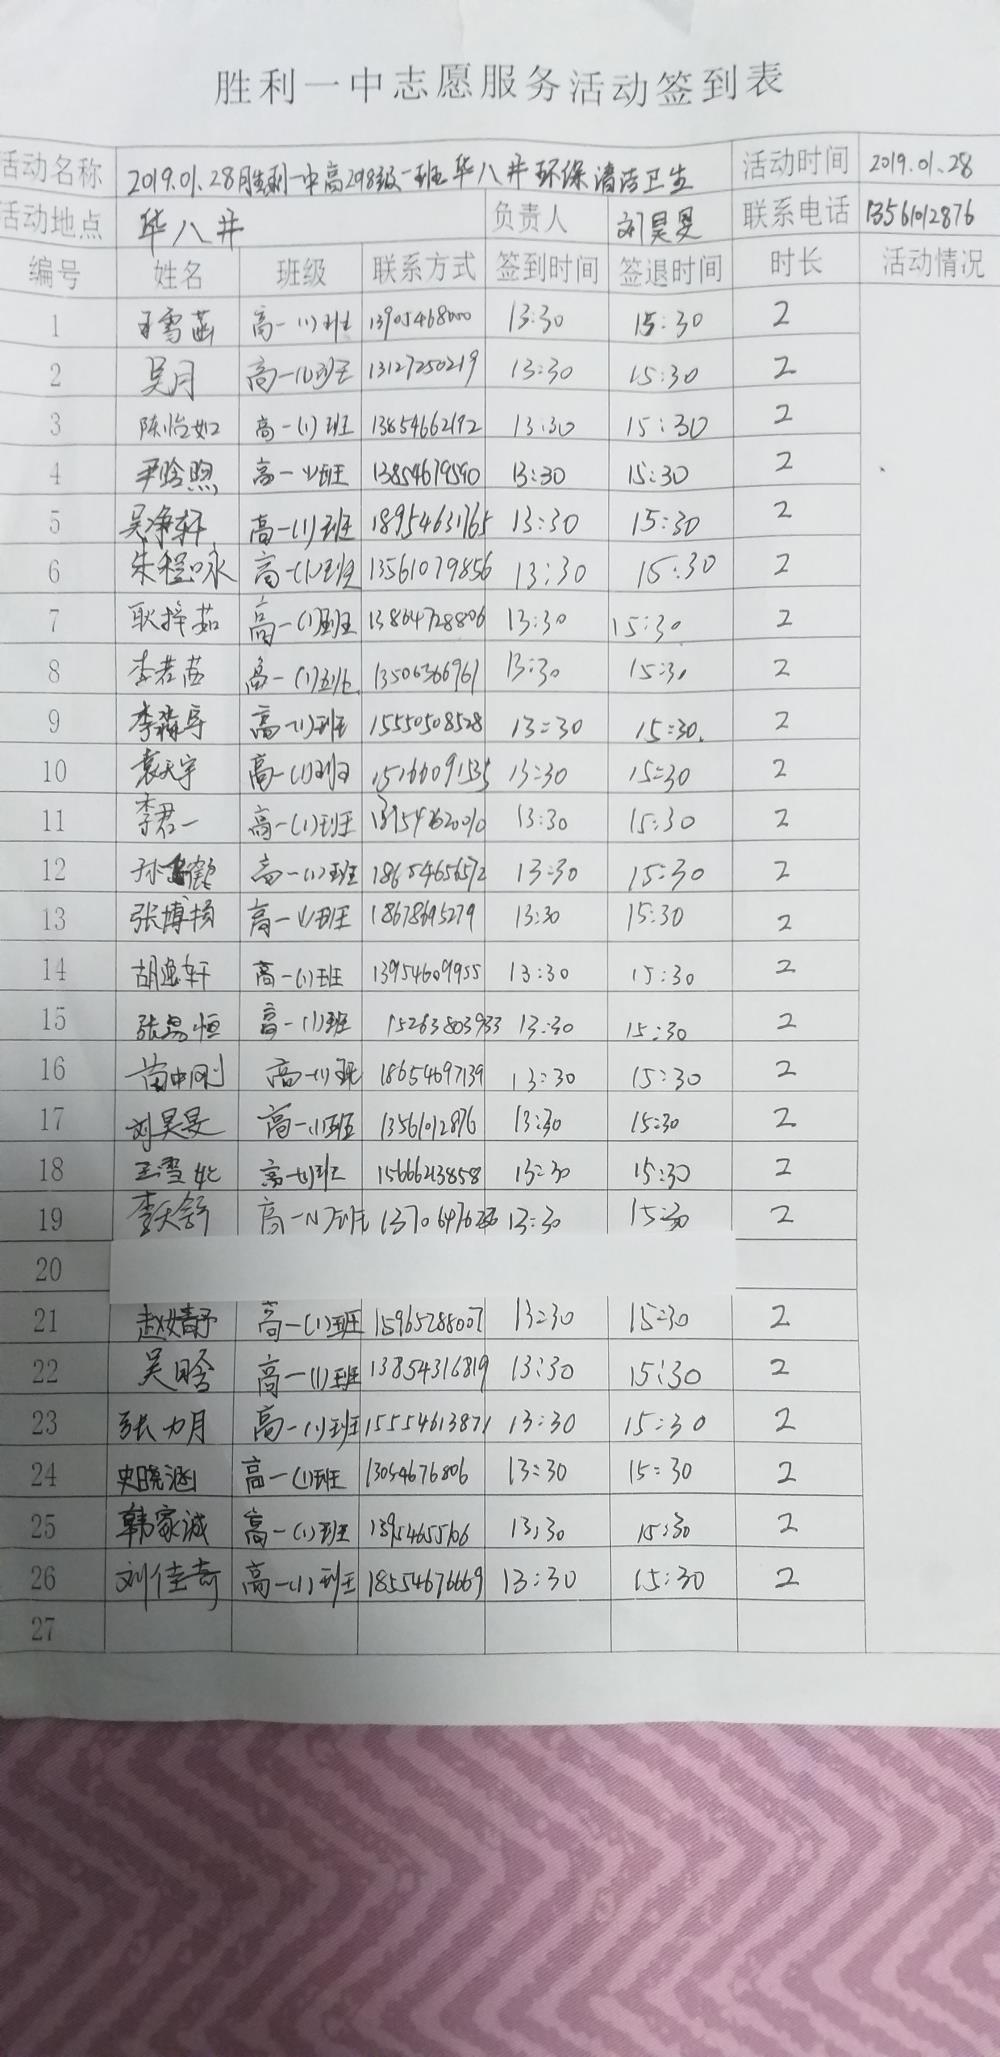 胜利一中志愿服务活动签到表
活动名称 2019.01.28胜利一中高2018级一班华八井环保清洁卫生 活动时间 2019.01.28
活动地点 华八井 负责人 刘昊旻 联系电话 13561012876
编号 姓名 班级 联系方式 签到时间 签退时间 时长 活动情况
1 王雪菡 高一(1)班 13905468000 13:30 15:30 2
2 吴月 高一(1)班 13127250219 13:30 15:30 2
3 陈怡如 高一(1)班 13854662192 13:30 15:30 2
4 尹晗煦 高一(1)班 13854679590 13:30 15:30 2
5 吴净轩 高一(1)班 18954631765 13:30 15:30 2
6 朱程咏 高一(1)班 13561079856 13:30 15:30 2
7 耿梓茹 高一(1)班 13864728806 13:30 15:30 2
8 李若茜 高一(1)班 13506366961 13:30 15:30 2
9 李森宇 高一(1)班 15550508528 13:30 15:30 2
10 袁天宇 高一(1)班 13:30 15:30 2
11 李君一 高一(1)班 13:30 15:30 2
12 孙 鹤 高一(1)班 13:30 15:30 2
13 张博扬 高一(1)班 18678695279 13:30 15:30 2
14 胡逸轩 高一(1)班 13954609955 13:30 15:30 2
15 张易恒 高一(1)班 15263803933 13:30 15:30 2
16 苗中刚 高一(1)班 18654697139 13:30 15:30 2
17 刘昊旻 高一(1)班 13561012876 13:30 15:30 2
18 王雪 高一(1)班 15666213858 13:30 15:30 2
19 李天舒 高一(1)班 13:30 15:30 2
20
21 赵婧予 高一(1)班 15965288007 13:30 15:30 2
22 吴晗 高一(1)班 13854316819 13:30 15:30 2
23 张力月 高一(1)班 15554613871 13:30 15:30 2
24 史晓涵 高一(1)班 13054676806 13:30 15:30 2
25 韩家诚 高一(1)班 13:30 15:30 2
26 刘佳奇 高一(1)班 18554676669 13:30 15:30 2
27